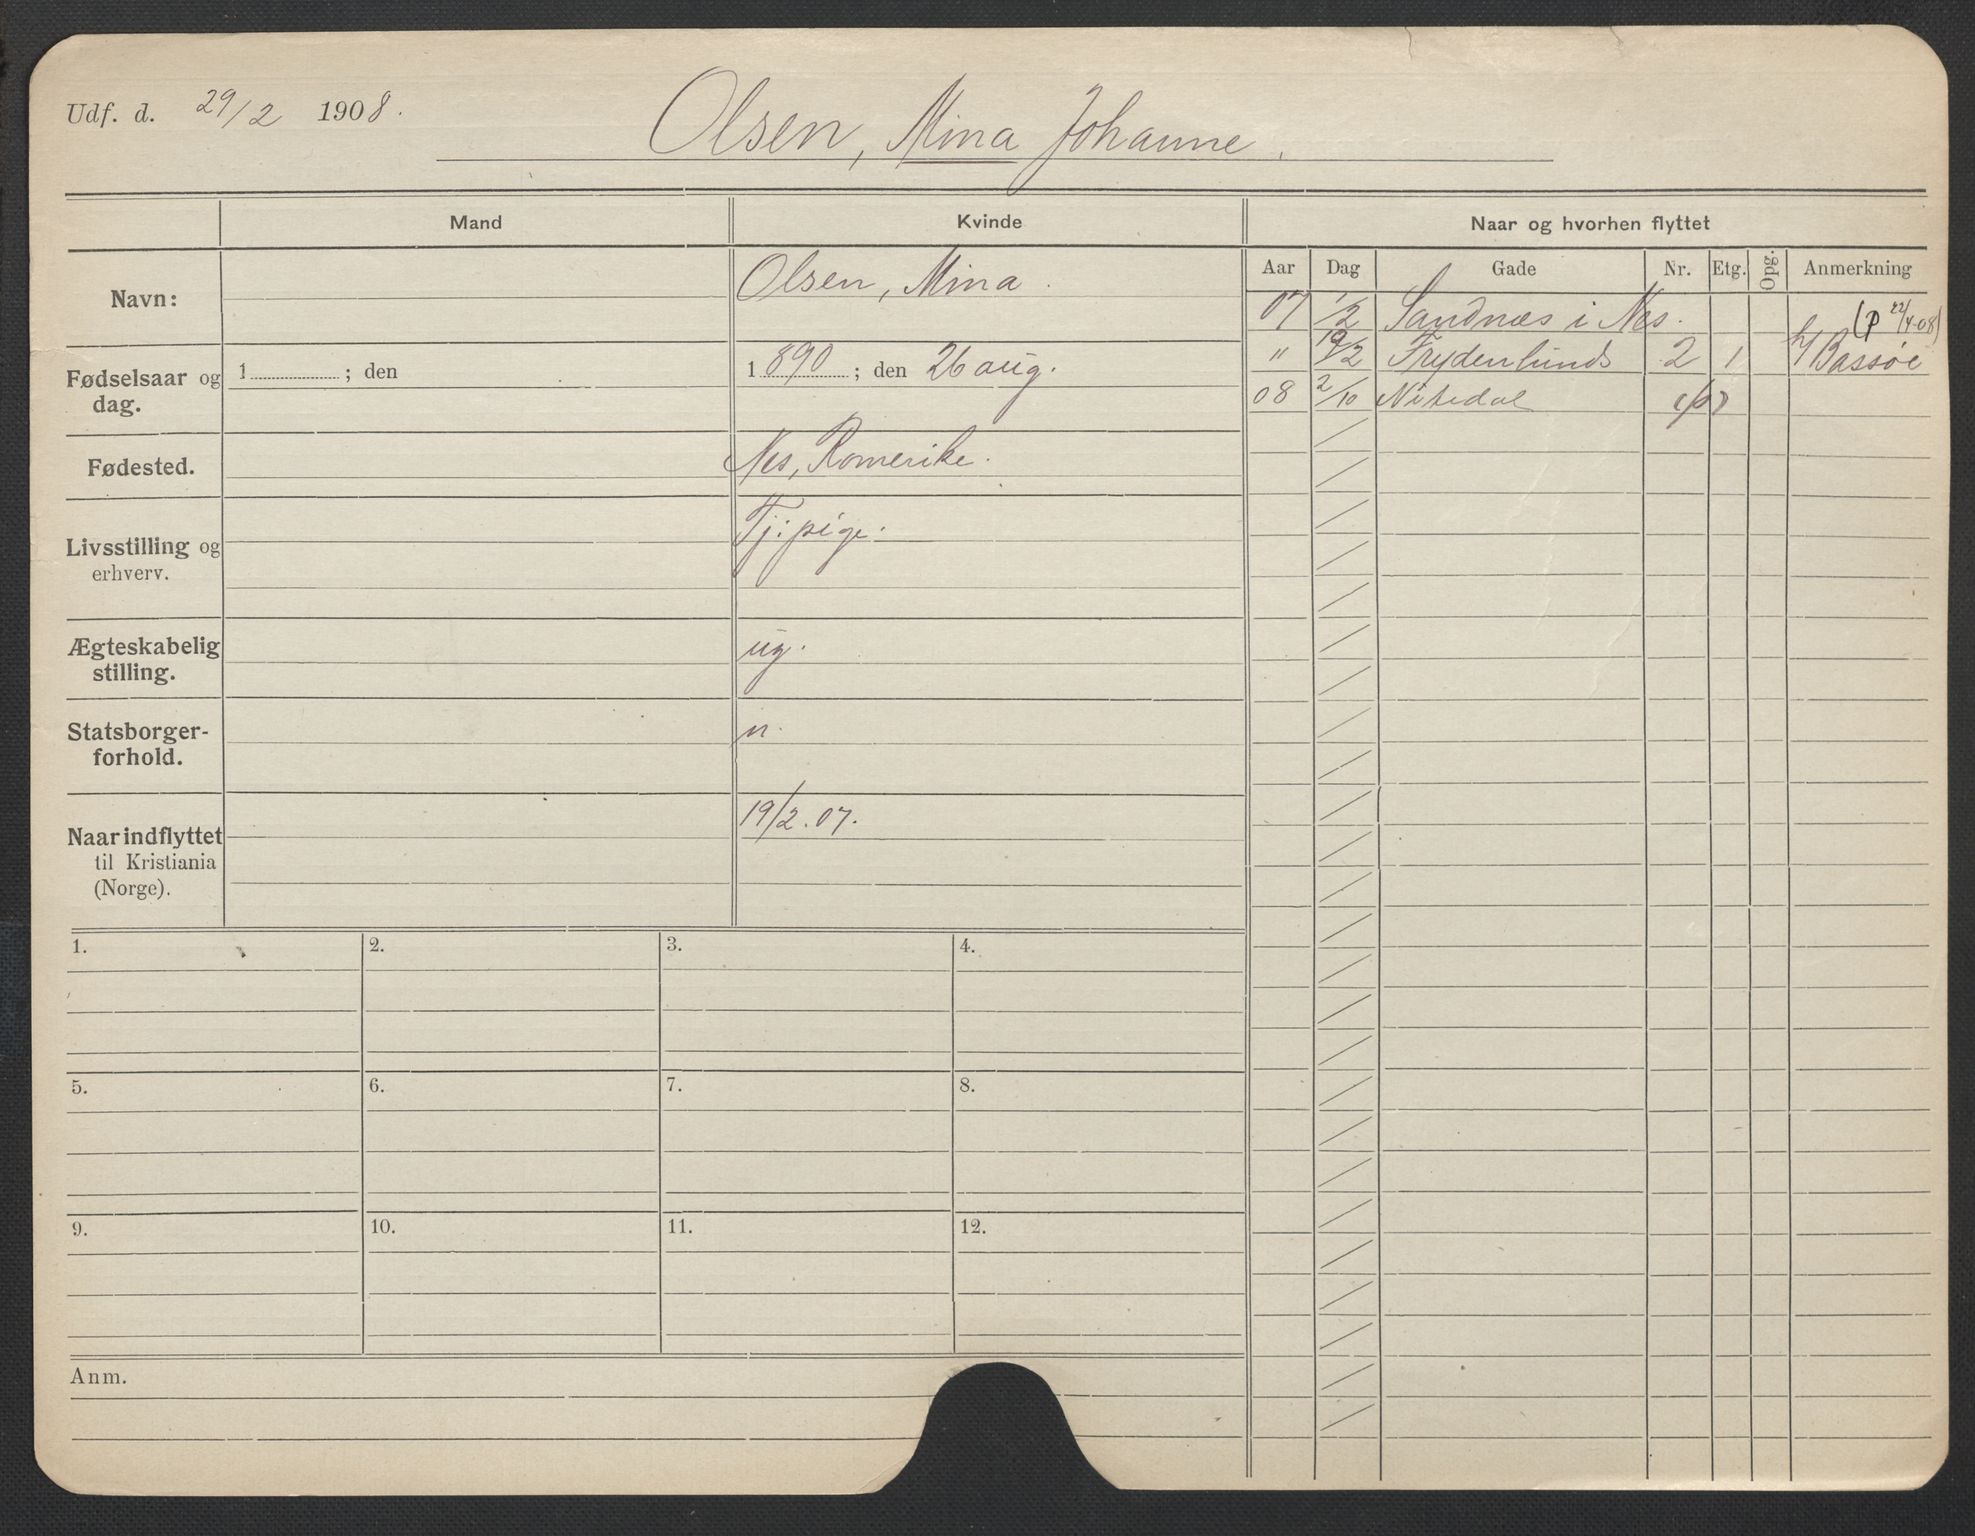 Udf. d. 29/2 1908.
Olsen, Mina Johanne.
Mand
Kvinde
Naar og hvorhen flyttet
Navn:
Olsen, Mina.
Aar Dag Gade Nr. Etg. Opg. Anmerkning
07 1/2 Sandnæs i Nes. (P 22/4-08)
" 19/2 Frydenlunds 2 1 h/Bassøe
08 2/10 Nitedal
Fødselsaar og dag.
1 ; den
1890 ; den 26 aug.
Fødested.
Nes, Romerike.
Livsstilling og
erhverv.
Tj: pige.
Ægteskabelig
stilling.
ug.
Statsborger-
forhold.
n.
Naar indflyttet
til Kristiania
(Norge).
19/2.07.
1. 2. 3. 4.
5. 6. 7. 8.
9. 10. 11. 12.
Anm.